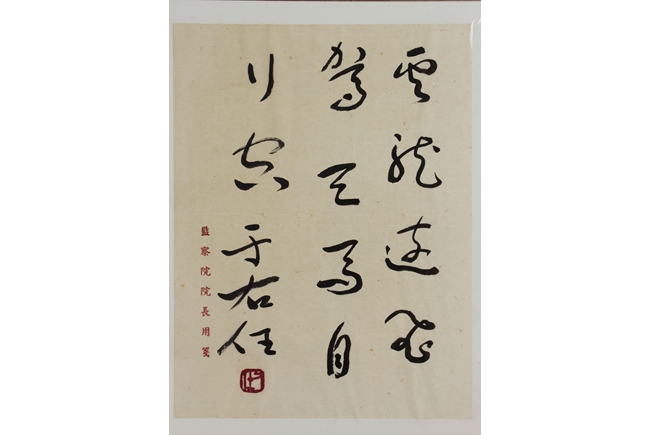 雲龍遠飛
駕天馬自
行空于右任
監察院院長用箋